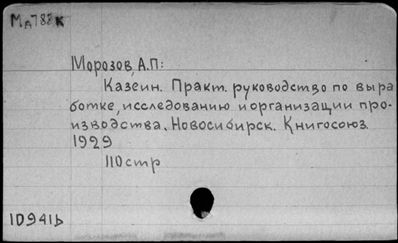 Мд788к
Морозов, А.П:
Казеин. Практ. руководство по выра
ботке, исследованию и организации про-
изводства. Новосибирск. Книгосоюз
1929
110 стр
1D941b